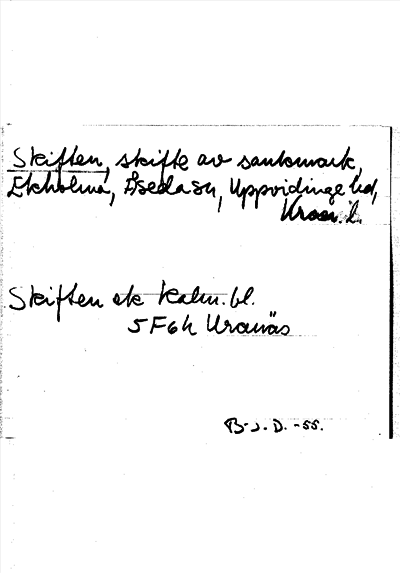 Skiften, skifte av sankmark,
Ekholma, Åseda sn, Uppvidinge hd,
Kron. l.
Skiften ek Kalm. bl.
5 F 6 h Uranäs
B-J. D. -55.